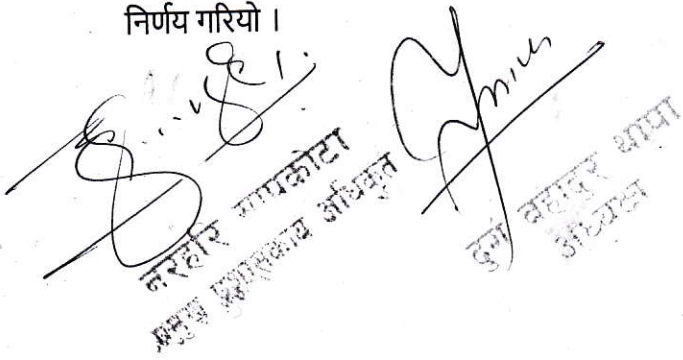 निर्णय गरियो ।
नरहरि सापकोटा
प्रमुख प्रशासकीय अधिकृत
दुर्ग बहादुर थापा
अध्यक्ष